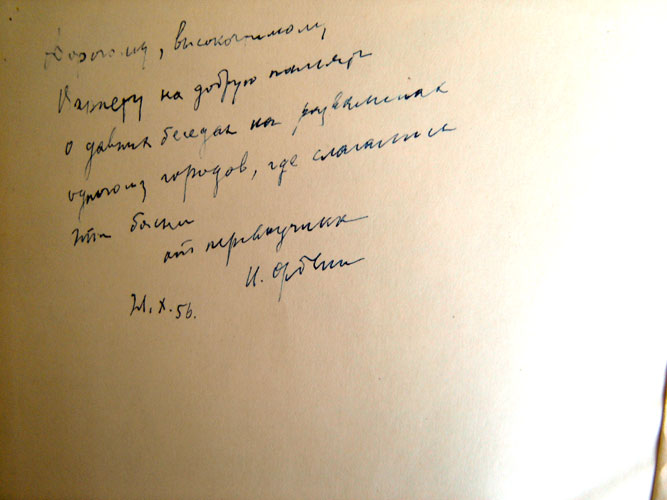 Дорогому, высокочтимому
на добрую память
о давних беседах на развалинах
одного из городов, где слагались
эти басни
от переводчика
И. Орбели
21.X.56.